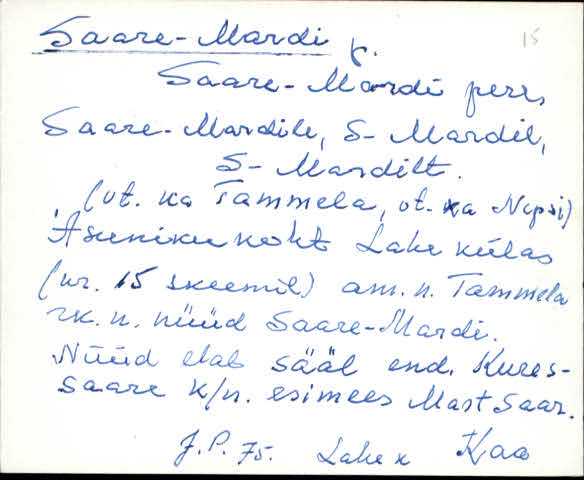 Saare-Mardi t. 15
Saare-Mardi pere,
Saare-Mardile, S- Mardil,
S- Mardilt.
(vt. ka Tammela, vt. ka Nipsi)
Asunikukoht Lahe külas
(nr. 15 skeemil) am. n. Tammela
rk. n. nüüd Saare-Mardi.
Nüüd elab sääl end. Kures-
saare k/n. esimees Mart Saar.
J.P. 75. Lahe k Kaa